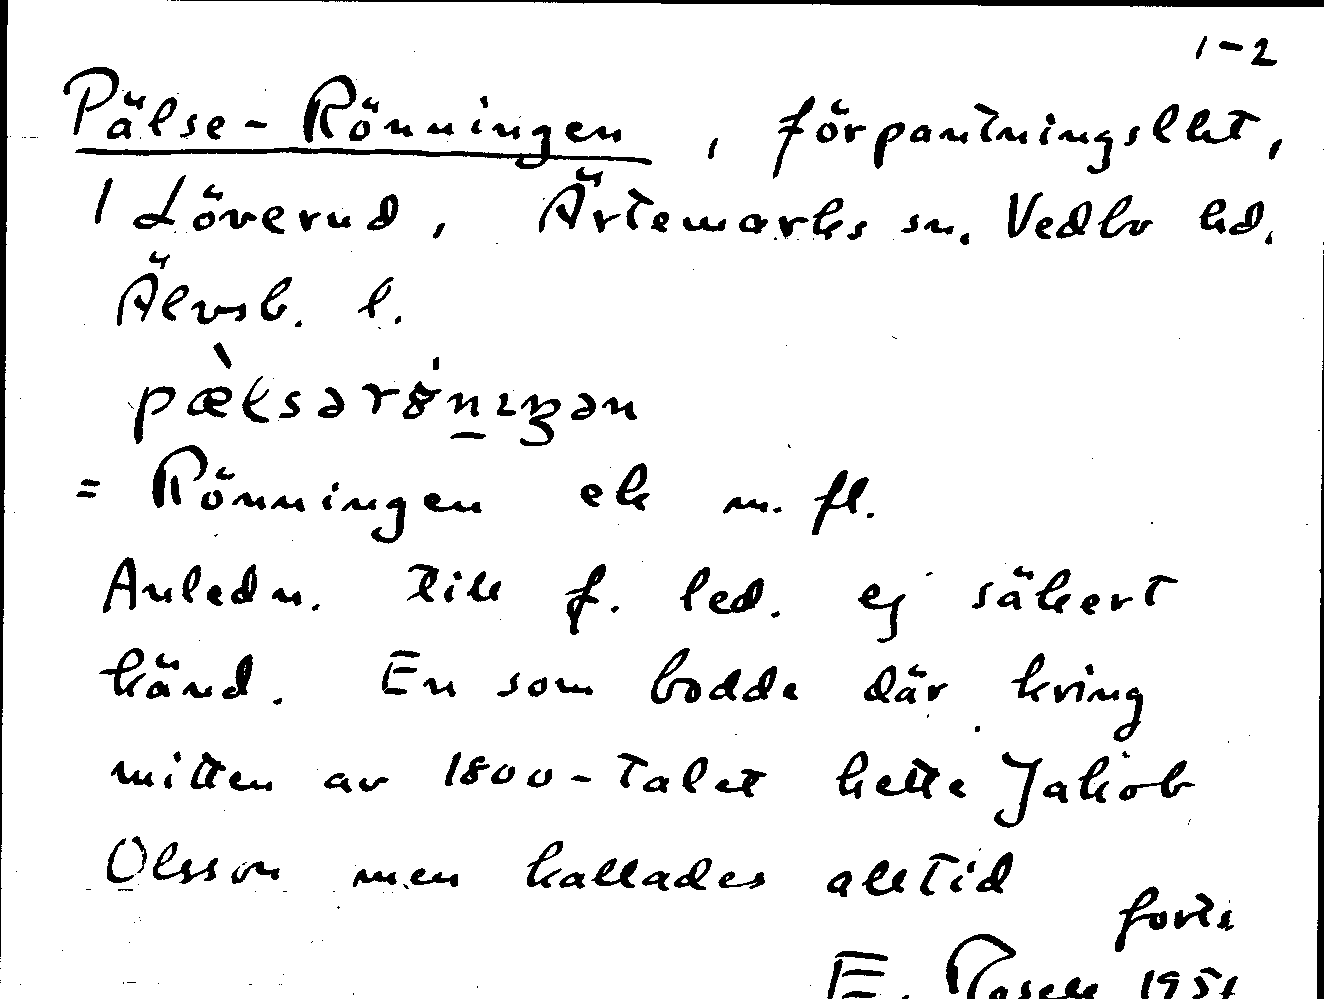 1-2
Pälse-Rönningen, förpantningslht,
1 Löverud, Ärtemarks sn. Vedbo hd.
Älvsb. l.
pæ̀ɭsərǿnɪŋən
= Rönningen ek m. fl.
Anledn. till f. led. ej säkert
känd. En som bodde där kring
mitten av 1800-talet hette Jakob
Olsson men kallades alltid
forts
E. 195